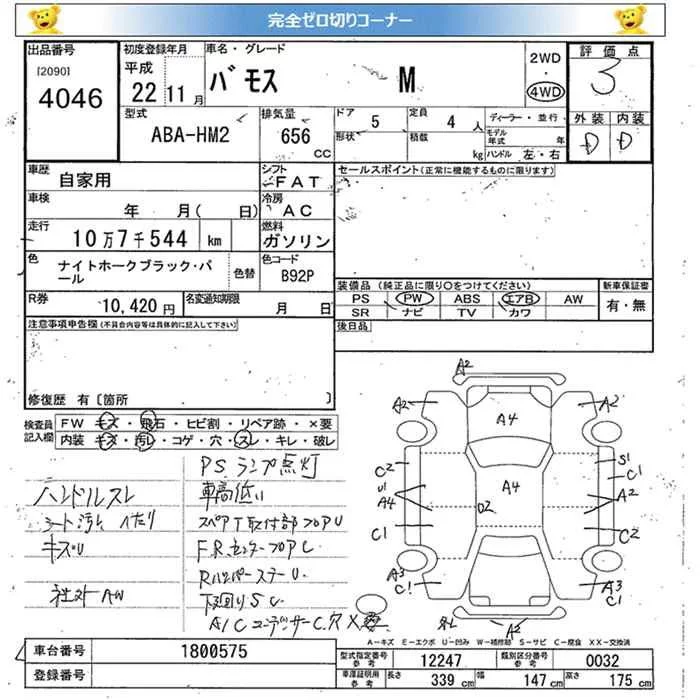 完全ゼロ切りコーナー
出品番号 初度登録年月 車名・グレード 2WD 評価点
[2090] 平成 バモス M ・ 3
4046 22 11 月 4WD
型式 排気量 ドア 5 定員 4 人 ディーラー・並行 外装 内装
ABA-HM2 656 CC 形状 積載 kg モデル年式 年 D D
ハンドル 左・右
車歴 自家用 シフト FAT セールスポイント(正常に機能するものに限ります)
車検 年 月( 日) 冷房 AC
走行 10万7千544 km 燃料 ガソリン
色 ナイトホークブラック・パール 色替 色コード B92P
装備品 (純正品に限り○をつけてください) 新車保証書
R券 10,420 円 名変通知期限 月 日 PS PW ABS エアB AW 有・無
SR ナビ TV カワ
注意事項申告欄(不具合内容等は具体的に記入して下さい) 後日品
修復歴 有〔箇所 〕
検査員記入欄 FW キズ・飛石・ヒビ割・リペア跡・×要
内装 キズ・汚レ・コゲ・穴・スレ・キレ・破レ
PSランプ点灯
ハンドルスレ 車高低い
シート汚レ ヘタリ スペアT取付部フロアU
キズU F.R.センターフロアC
社外AW 下回りSC
A/CコンデンサーC穴
A2
A2 A2
A4
C2 S1
C1
U1 A4 A2
A4 U2
C1 C2
A3 A3
C1 C1
A2
A-キズ E-エクボ U-凹み W-補修跡 S-サビ C-腐食 XX-交換済
車台番号 1800575 型式指定番号 参考 12247 類別区分番号 参考 0032
登録番号 車庫証明用 参考 長さ 339 cm 幅 147 cm 高さ 175 cm